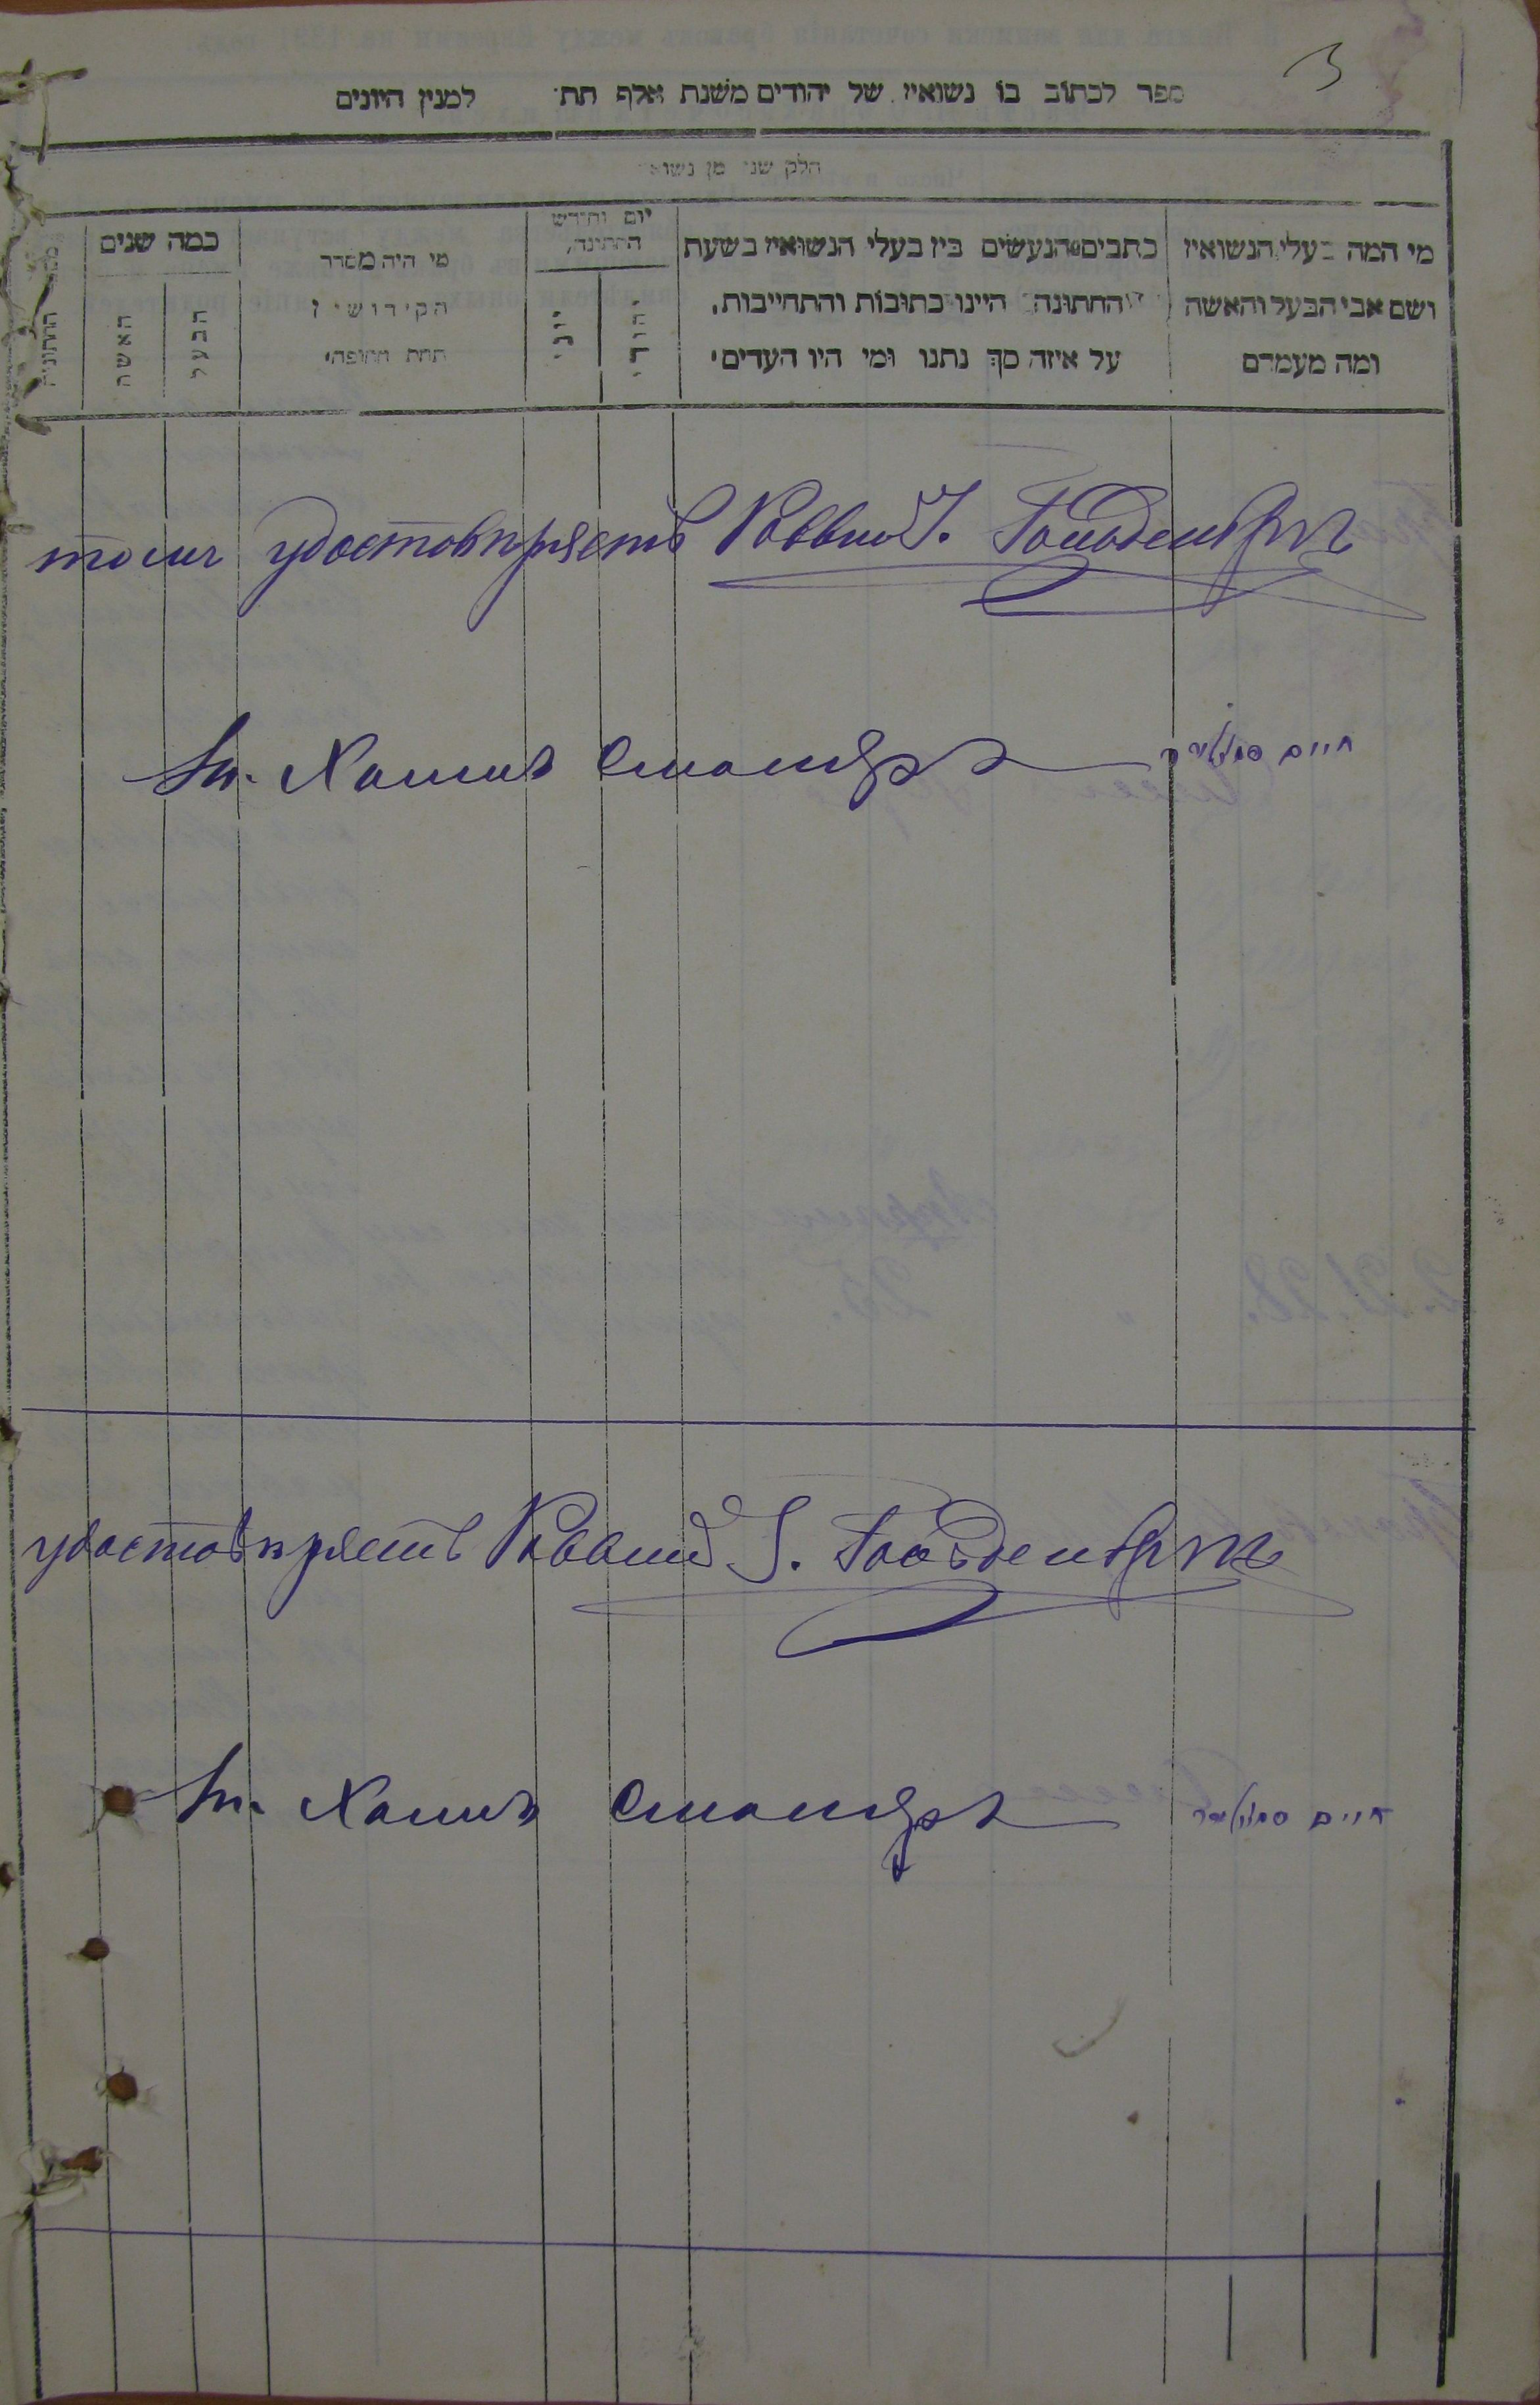 3
ספר לכתוב בו נשואין של יהודים משנת אלף תת למנין היונים
חלק שני מן נשואי
מי המה בעלי הנשואין
ושם אבי הבעל והאשה
ומה מעמדם
כתבים הנעשים בין בעלי הנשואין בשעת
החתונה היינו כתובות והתחייבות,
על איזה סך נתנו ומי היו העדים
יום וחודש
החתונה,
יהודי
יוני
מי היה מסדר
הקידושין
תחת החופה
כמה שנים
הבעל
האשה
החתונה
удостовѣряетъ Раввинъ Гольденбергъ
Хаимъ חיים
удостовѣряетъ Раввинъ Гольденбергъ
Хаимъ חיים